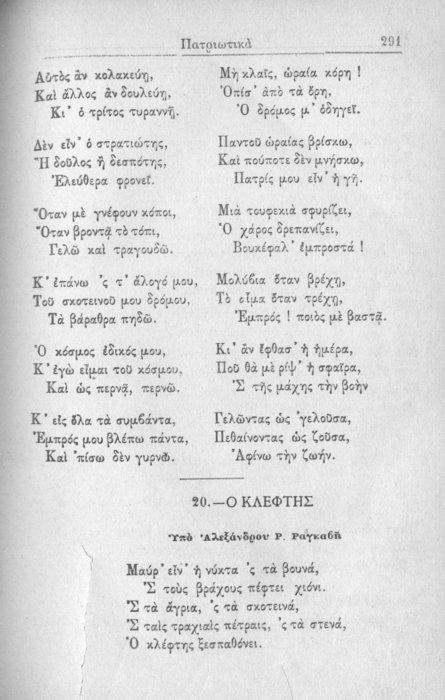 Πατριωτικὰ 291
Αὐτὸς ἂν κολακεύῃ,
Καὶ ἄλλος ἂν δουλεύῃ,
Κι᾿ ὁ τρίτος τυραννῇ.
Δὲν εἶν᾿ ὁ στρατιώτης,
Ἢ δοῦλος ἢ δεσπότης,
Ἐλεύθερα φρονεῖ.
Ὅταν μὲ γνέφουν κόποι,
Ὅταν βροντᾷ τὸ τόπι,
Γελῶ καὶ τραγουδῶ.
Κ᾿ ἐπάνω ᾿ς τ᾿ ἄλογό μου,
Τοῦ σκοτεινοῦ μου δρόμου,
Τὰ βάραθρα πηδῶ.
Ὁ κόσμος ἐδικός μου,
Κ᾿ ἐγὼ εἶμαι τοῦ κόσμου,
Καὶ ὡς περνᾷ, περνῶ.
Κ᾿ εἰς ὅλα τὰ συμβάντα,
Ἐμπρός μου βλέπω πάντα,
Καὶ ᾿πίσω δὲν γυρνῶ.
Μὴ κλαῖς, ὡραία κόρη !
Ὀπίσ᾿ ἀπὸ τὰ ὄρη,
Ὁ δρόμος μ᾿ ὁδηγεῖ.
Παντοῦ ὡραίας βρίσκω,
Καὶ πούποτε δὲν μνήσκω,
Πατρίς μου εἶν᾿ ἡ γῆ.
Μιὰ τουφεκιὰ σφυρίζει,
Ὁ χάρος δρεπανίζει,
Βουκέφαλ᾿ ἐμπροστά !
Μολύβια ὅταν βρέχῃ,
Τὸ αἷμα ὅταν τρέχῃ,
Ἐμπρός ! ποιὸς μὲ βαστᾷ.
Κι᾿ ἂν ἔφθασ᾿ ἡ ἡμέρα,
Ποῦ θὰ μὲ ρίψ᾿ ἡ σφαῖρα,
Σ τῆς μάχης τὴν βοὴν
Γελῶντας ὡς ᾿γελοῦσα,
Πεθαίνοντας ὡς ζοῦσα,
Ἀφίνω τὴν ζωήν.
20.—Ο ΚΛΕΦΤΗΣ
Ὑπὸ Ἀλεξάνδρου Ρ. Ραγκαβῆ
Μαύρ᾿ εἶν᾿ ἡ νύκτα ᾿ς τὰ βουνά,
Σ τοὺς βράχους πέφτει χιόνι.
Σ τὰ ἄγρια, ᾿ς τὰ σκοτεινά,
Σ ταῖς τραχιαῖς πέτραις, ᾿ς τὰ στενά,
Ὁ κλέφτης ξεσπαθόνει.